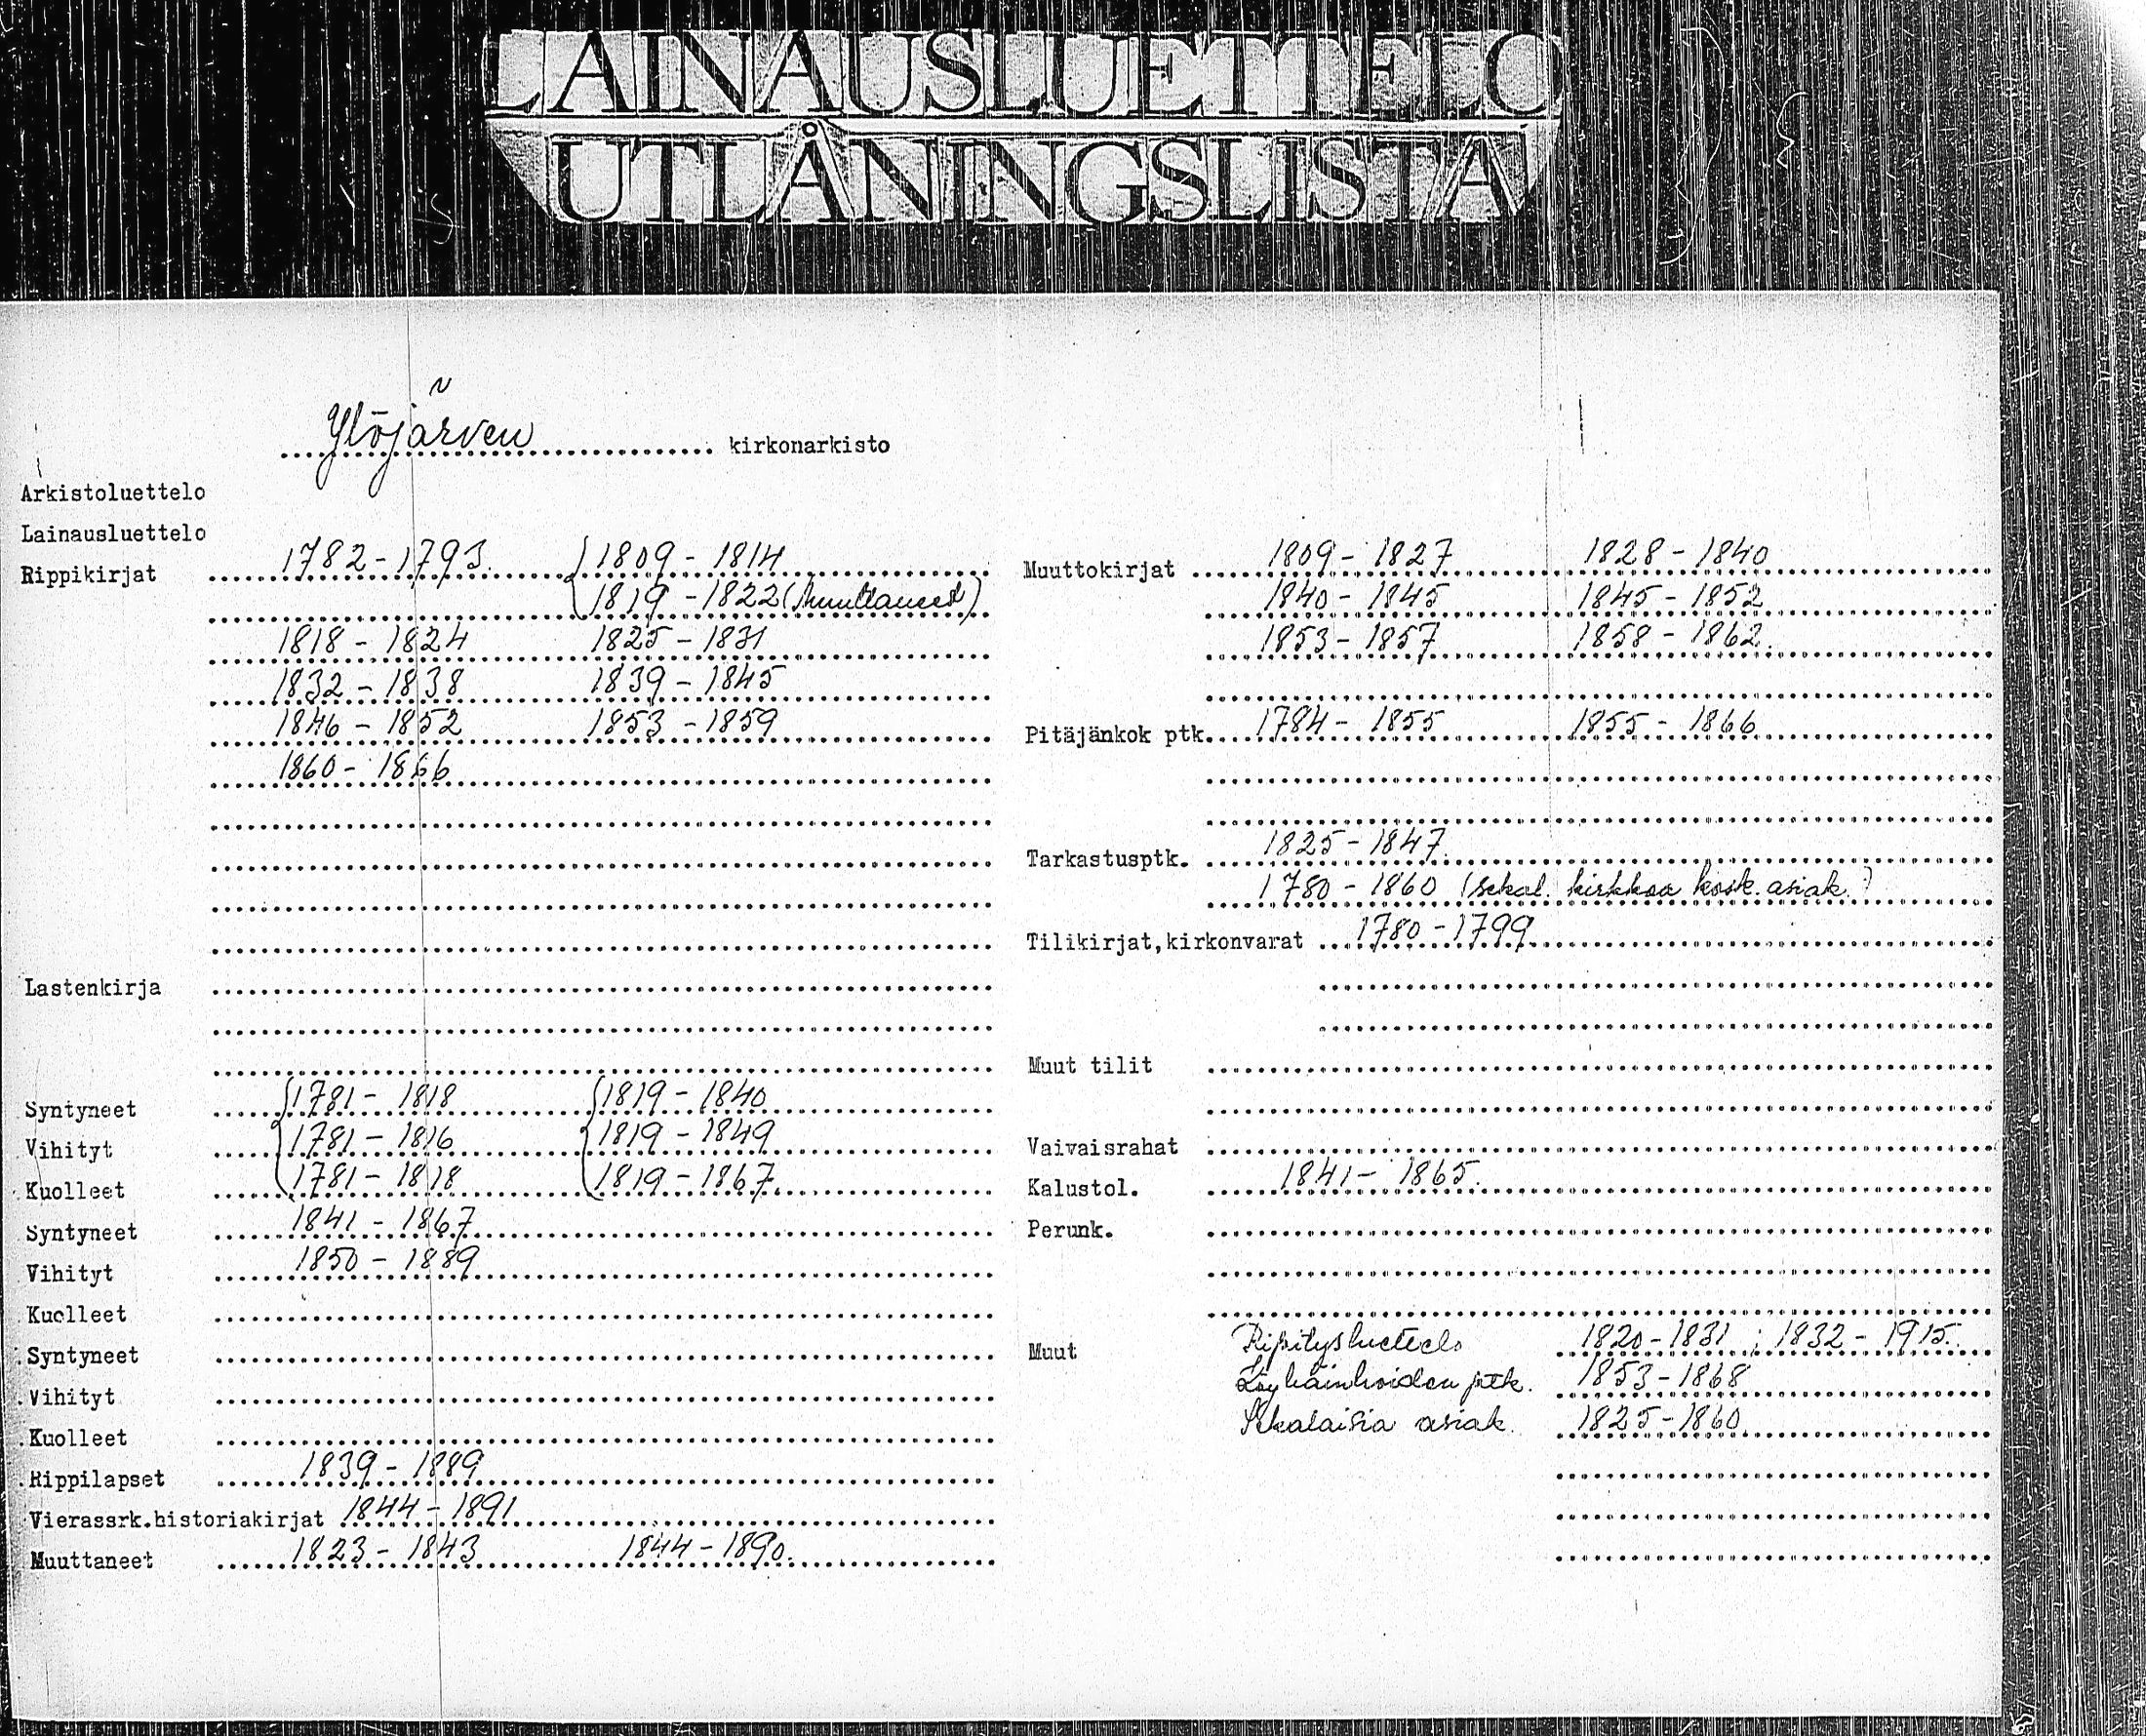 LAINAUSLUETTELO
UTLÅNINGSLISTA
Ylöjärven kirkonarkisto
Arkistoluettelo
Lainausluettelo
Rippikirjat 1782-1793. 1809-1814
1819-1822 (Muuttaneet)
1818-1824 1825-1831
1832-1838 1839-1845
1846-1852 1853-1859
1860-1866
Lastenkirja
Syntyneet 1781-1818 1819-1840
Vihityt 1781-1816 1819-1849
Kuolleet 1781-1818 1819-1867.
Syntyneet 1841-1867
Vihityt 1850-1889
Kuolleet
Syntyneet
Vihityt
Kuolleet
Rippilapset 1839-1889
Vierassrk.historiakirjat 1844-1891
Muuttaneet 1823-1843 1844-1890.
Muuttokirjat 1809-1827 1828-1840
1840-1845 1845-1852
1853-1857 1858-1862.
Pitäjänkok ptk. 1784-1855 1855-1866
Tarkastusptk. 1825-1847.
1780-1860 (sekal. kirkkoa kosk. asiak.)
Tilikirjat,kirkonvarat 1780-1799
Muut tilit
Vaivaisrahat
Kalustol. 1841-1865.
Perunk.
Muut Ripitysluettelo 1820-1831 ; 1832-1915.
ptk. 1853-1868
Sekalaisia asiak. 1825-1860.